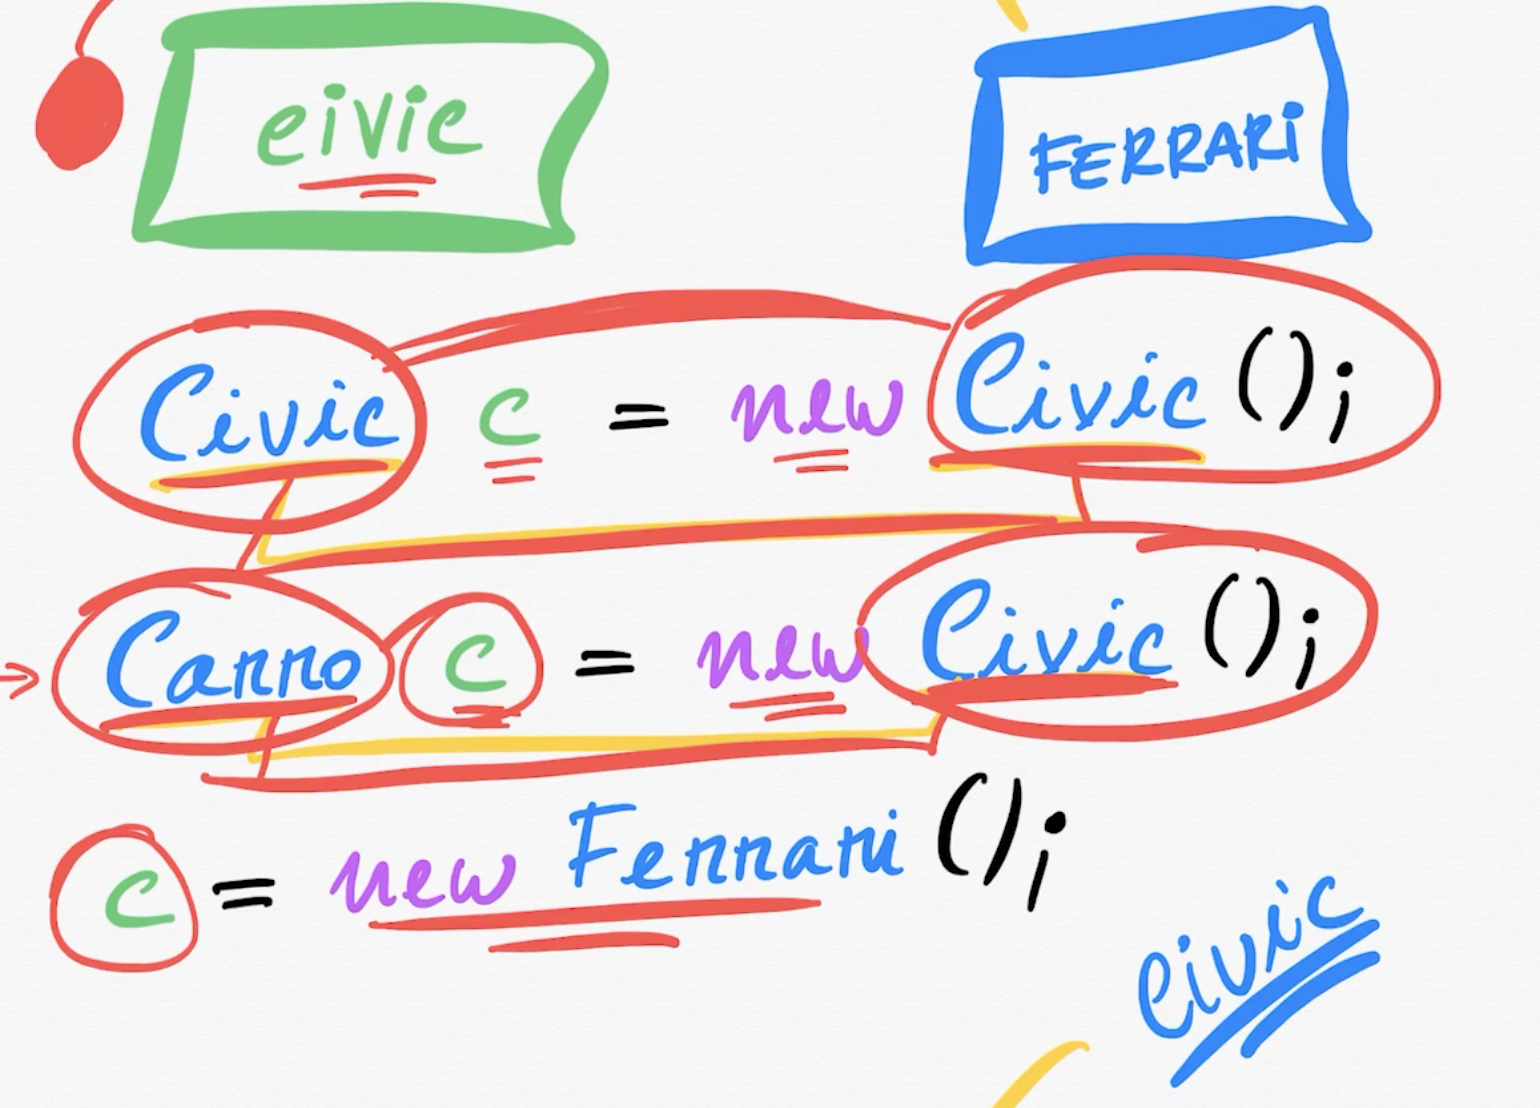 civic
FERRARi
Civic c = new Civic ();
Carro c = new Civic ();
c = new Ferrari ();
Civic